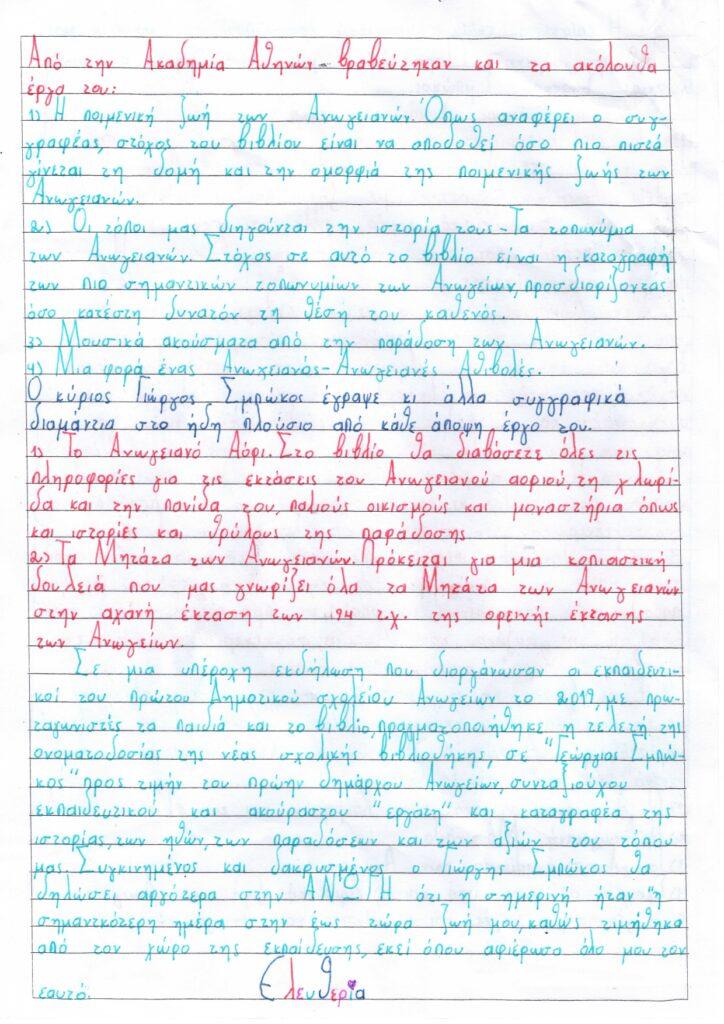 Από την Ακαδημία Αθηνών βραβεύτηκαν και τα ακόλουθα
έργα του:
1) Η ποιμενική ζωή των Ανωγειανών. Όπως αναφέρει ο συγ-
γραφέας, στόχος του βιβλίου είναι να αποδοθεί όσο πιο πιστά
γίνεται τη δομή και την ομορφιά της ποιμενικής ζωής των
Ανωγειανών.
2) Οι τόποι μας διηγούνται την ιστορία τους - Τα τοπωνύμια
των Ανωγειανών. Στόχος σε αυτό το βιβλίο είναι η καταγραφή
των πιο σημαντικών τοπωνυμίων των Ανωγείων, προσδιορίζοντας
όσο κατέστη δυνατόν τη θέση του καθενός.
3) Μουσικά ακούσματα από την παράδοση των Ανωγειανών.
4) Μια φορά ένας Ανωγειανός - Ανωγειανές Αθιβολές.
Ο κύριος Γιώργος Σμπώκος έγραψε κι άλλα συγγραφικά
διαμάντια στο ήδη πλούσιο από κάθε άποψη έργο του.
1) Το Ανωγειανό Αόρι. Στο βιβλίο θα διαβάσετε όλες τις
πληροφορίες για τις εκτάσεις του Ανωγειανού αοριού, τη χλωρί-
δα και την πανίδα του, παλιούς οικισμούς και μοναστήρια όπως
και ιστορίες και θρύλους της παράδοσης
2) Τα Μητάτα των Ανωγειανών. Πρόκειται για μια κοπιαστική
δουλειά που μας γνωρίζει όλα τα Μητάτα των Ανωγειανών
στην αχανή έκταση των 94 τ.χ. της ορεινής έκτασης
των Ανωγείων.
Σε μια υπέροχη εκδήλωση που διοργάνωσαν οι εκπαιδευτι-
κοί του πρώτου Δημοτικού σχολείου Ανωγείων το 2019, με πρω-
ταγωνιστές τα παιδιά και το βιβλίο, πραγματοποιήθηκε η τελετή της
ονοματοδοσίας της νέας σχολικής βιβλιοθήκης, σε "Γεώργιος Σμπώ-
κος" προς τιμήν του πρώην δημάρχου Ανωγείων, συνταξιούχου
εκπαιδευτικού και ακούραστου "εργάτη" και καταγραφέα της
ιστορίας, των ηθών, των παραδόσεων και των αξιών του τόπου
μας. Συγκινημένος και δακρυσμένος ο Γιώργης Σμπώκος θα
δηλώσει αργότερα στην ΑΝΩΓΗ ότι η σημερινή ήταν "η
σημαντκότερη ημέρα στην έως τώρα ζωή μου, καθώς τιμήθηκα
από τον χώρο της εκπαίδευσης, εκεί όπου αφιέρωσα όλο μου τον
εαυτό. Ελευθερία